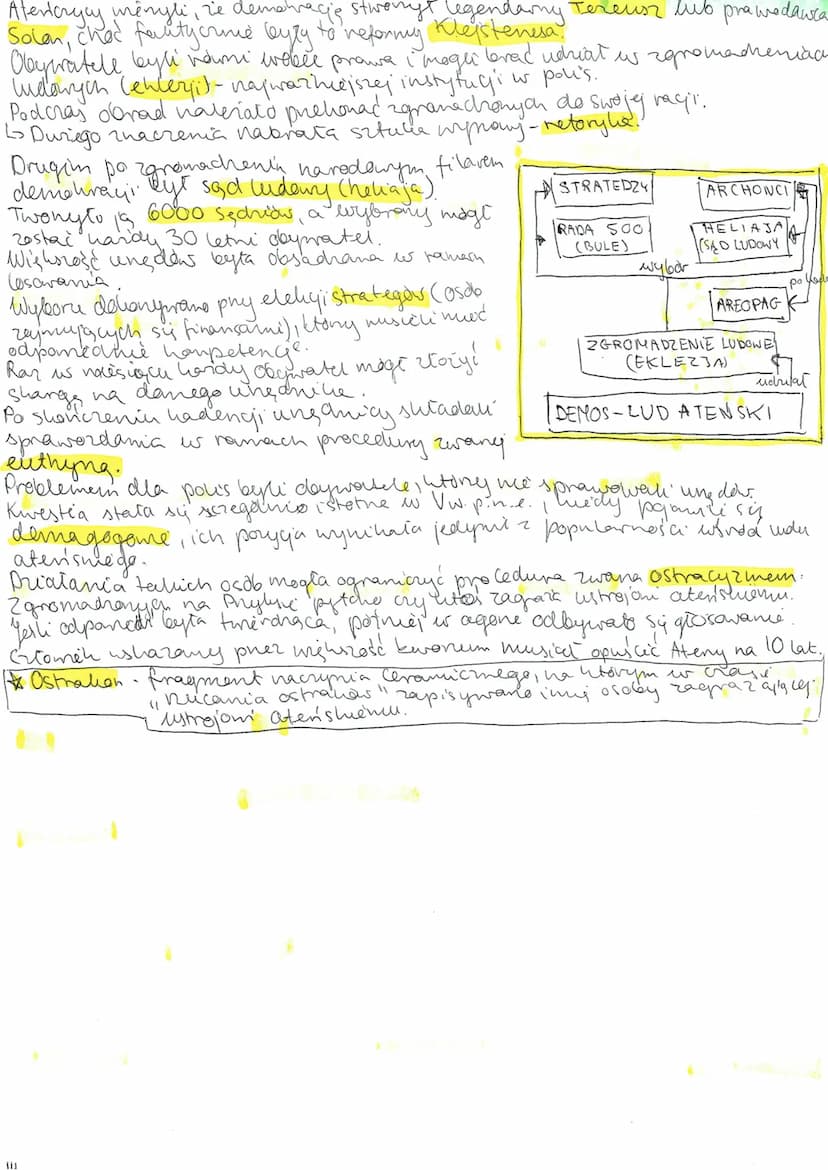 Ateńczycy wierzyli, że demokrację stworzył legendarny Tezeusz lub prawodawca
Solon, choć faktycznie były to reformy Klejstenesa.
Obywatele byli równi wobec prawa i mogli brać udział w zgromadzeniach
ludowych (eklezji) - najważniejszej instytucji w polis.
Podczas obrad należało przekonać zgromadzonych do swojej racji.
↳ Dużego znaczenia nabrała sztuka wymowy - retoryka.
Drugim po zgromadzeniu narodowym, filarem
demokracji był sąd ludowy (heliaja).
Tworzyło ją 6000 sędziów, a wybrany mógł
zostać każdy 30 letni obywatel.
Większość urzędów była obsadzana w ramach
losowania.
Wyboru dokonywano przy elekcji strategów (osób
zajmujących się finansami), którzy musieli mieć
odpowiednie kompetencje.
Raz w miesiącu każdy obywatel mógł złożyć
skargę na danego urzędnika.
Po skończeniu kadencji urzędnicy składali
sprawozdania w ramach procedury zwanej
euthyną.
STRATEDZY
ARCHONCI
RADA 500
(BULE)
HELIAJA
(SĄD LUDOWY
wybór
po
AREOPAG
ZGROMADZENIE LUDOWE
(EKLEZJA)
udział
DEMOS-LUD ATEŃSKI
Problemem dla polis byli obywatele, którzy nie sprawowali urzędów.
Kwestia stała się szczególnie istotna w V w. p.n.e., kiedy pojawili się
demagogowie, ich pozycja wynikała jedynie z popularności wśród ludu
ateńskiego.
Działania takich osób mogła ograniczyć procedura zwana ostracyzmem.
Zgromadzonych na Pnyksie pytano czy ktoś zagraża ustrojowi ateńskiemu.
Jeśli odpowiedź była twierdząca, później w agorze odbywało się głosowanie.
Człowiek wskazany przez większość kworum musiał opuścić Ateny na 10 lat.
☆ Ostrakon - fragment naczynia ceramicznego, na którym w czasie
"rzucania ostraków" zapisywano imię osoby zagrażającej
ustrojowi ateńskiemu.